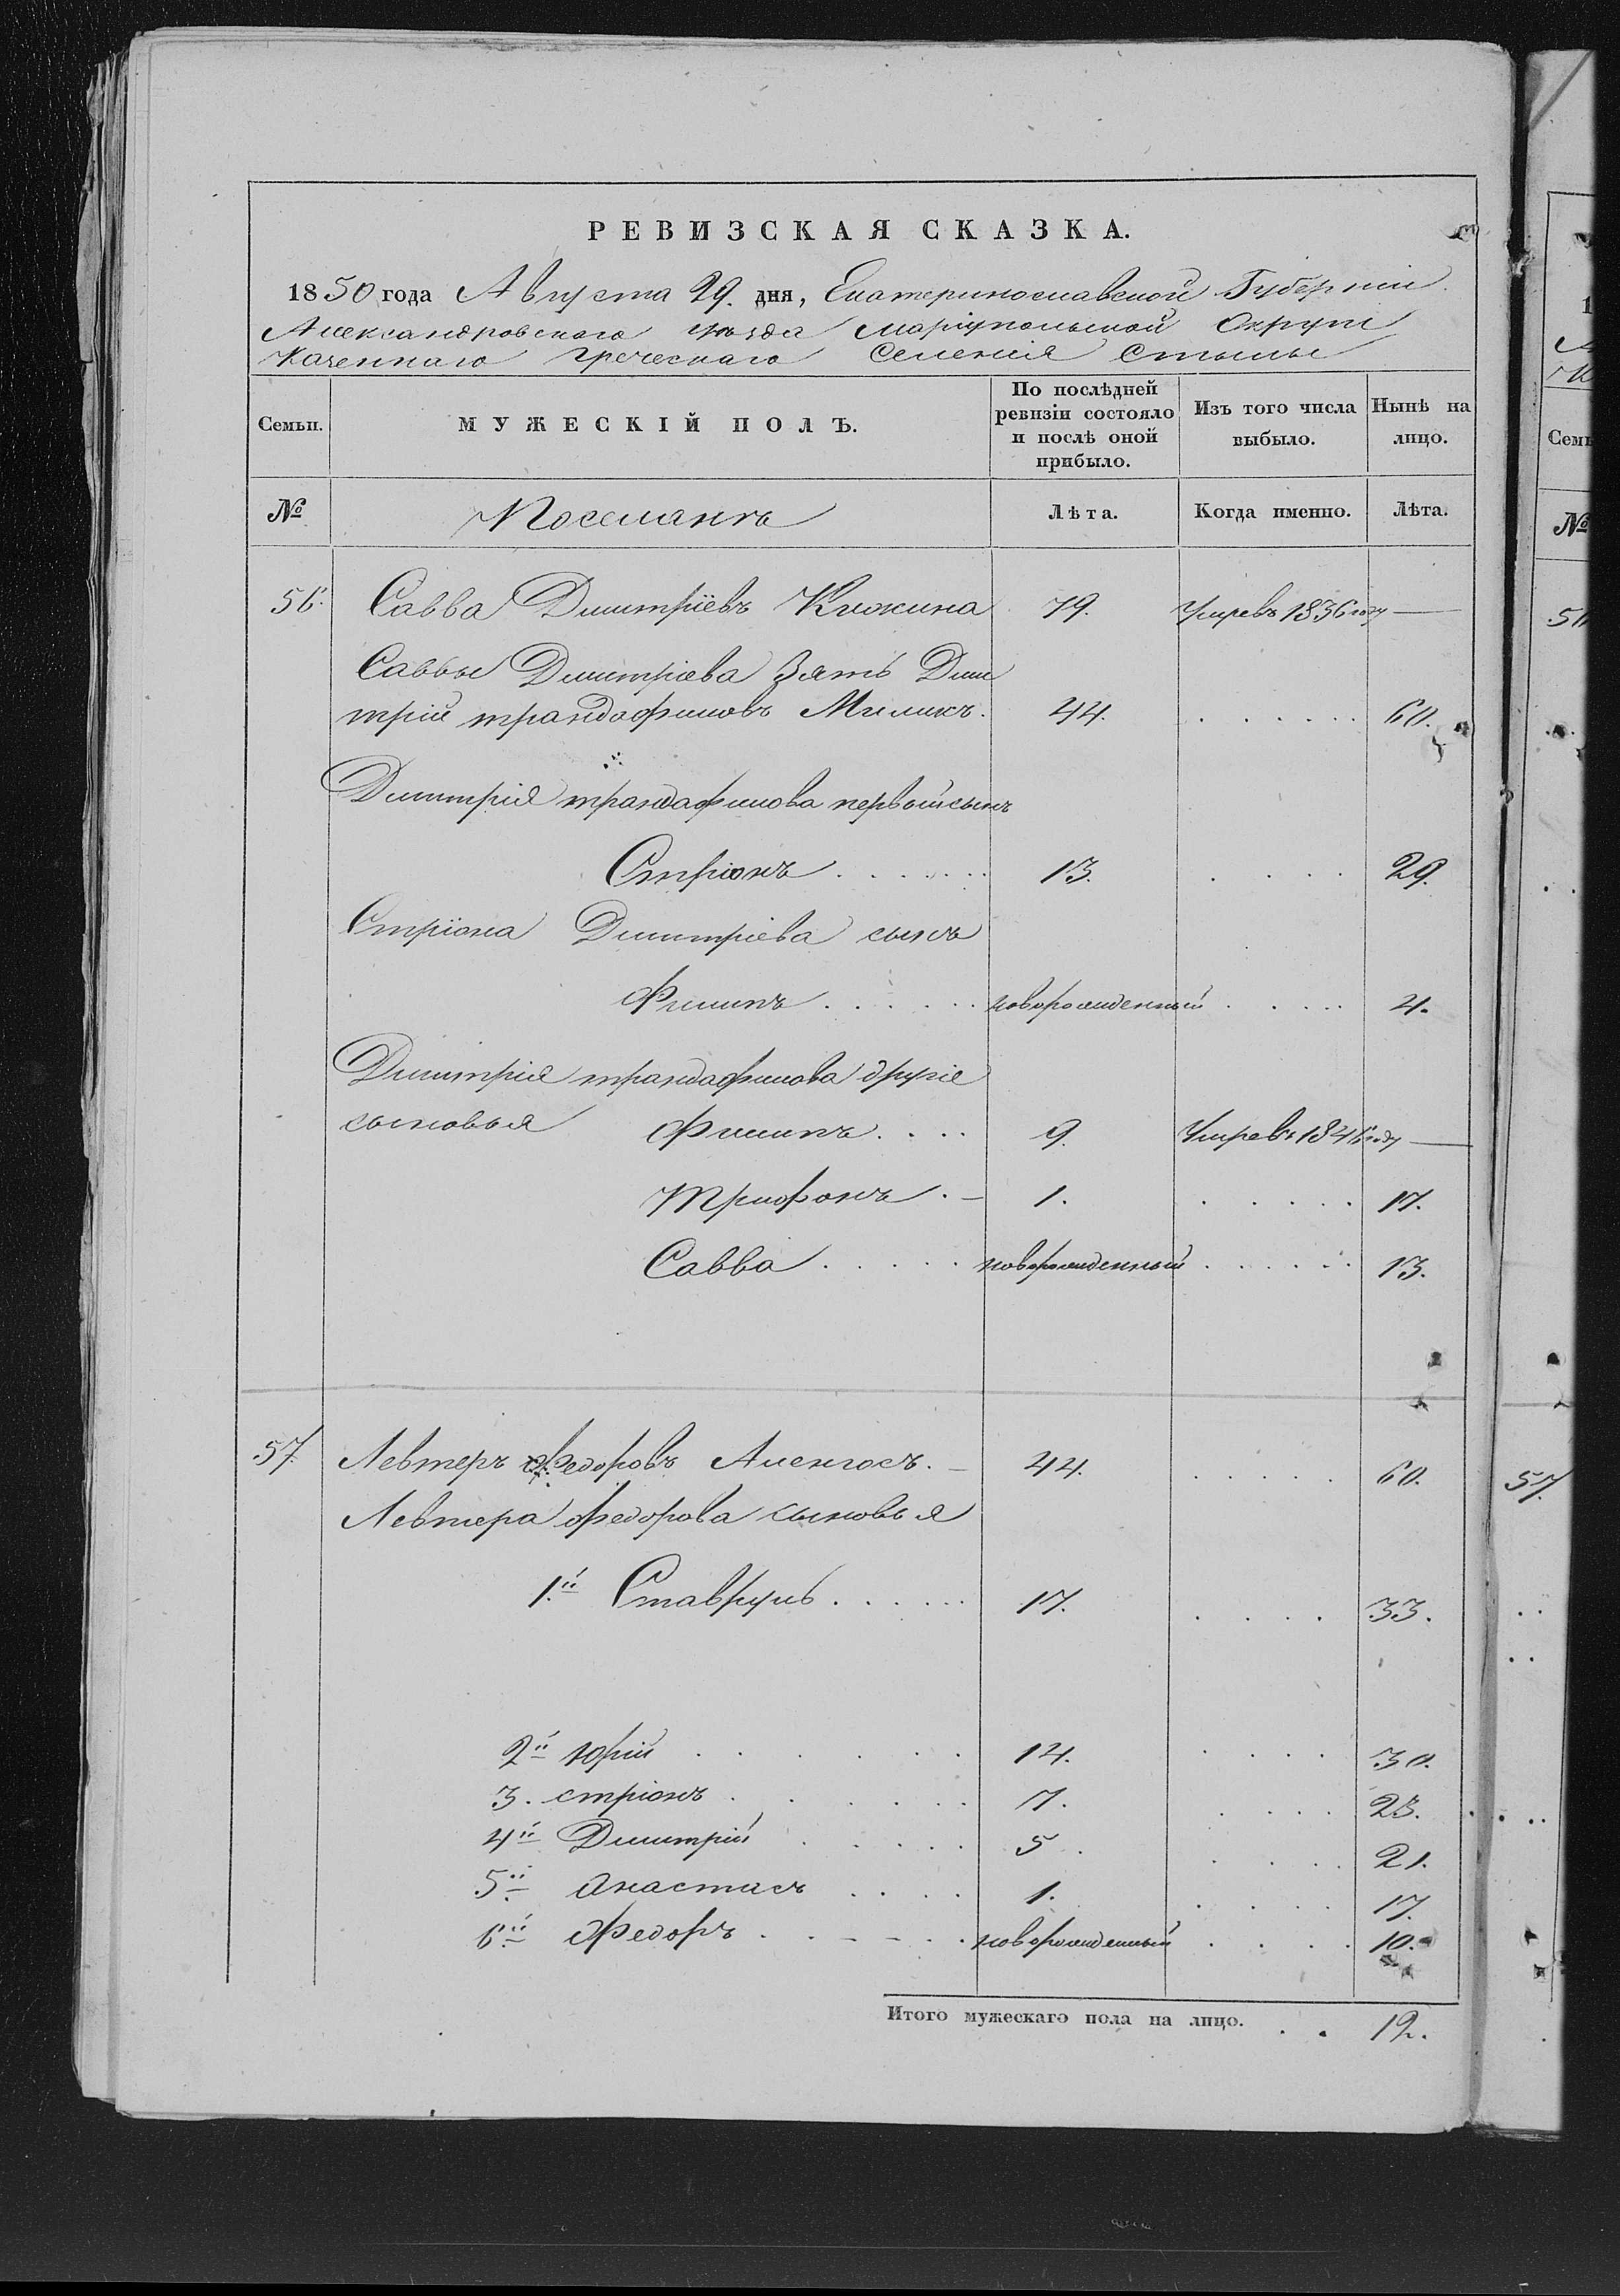 РЕВИЗСКАЯ СКАЗКА.
1850 года Августа 29. дня, Екатеринославской Губерніи
Александровскаго уѣзда Маріупольской Округи
Казеннаго Греческаго Селенія Стылы
Семьи. МУЖЕСКІЙ ПОЛЪ. По послѣдней ревизіи состояло и послѣ оной прибыло. Изъ того числа выбыло. Нынѣ на лицо.
№ Поселянъ Лѣта. Когда именно. Лѣта.
56. Савва Дмитріевъ Кижина 79. Умре въ 1836 году —
Саввы Дмитріева Зять Дми
трій трандафиловъ Миликъ. 44. . . . . . . 60.
Дмитрія трандафилова первой сынъ
Стріонъ . . . . . . 13. . . . . 29.
Стріона Дмитріева сынъ
Филипъ . . . . . новорожденный . . . . 4.
Дмитрія трандафилова другіе
сыновья Филипъ . . . . 9. Умре въ 1846 году —
Трифонъ . — 1. . . . . . 17.
Савва . . . . . новорожденный . . . . . . 13.
57. Левтеръ Федоровъ Аленгосъ. — 44. . . . . . 60.
Левтера Федорова сыновья
1.й Ставруль . . . . . . 17. . . . . 33.
2й Юрій . . . . . . 14. . . . . 30.
3. стріонъ . . . . . . 7. . . . . 23.
4й Дмитрій . . . . . 5 . . . . . 21.
5й Анастасъ . . . . 1. . . . . 17.
6.й Федоръ . . - - . новорожденный . . . . 10.
Итого мужескаго пола на лицо. . . 12.
57.
Семь
№